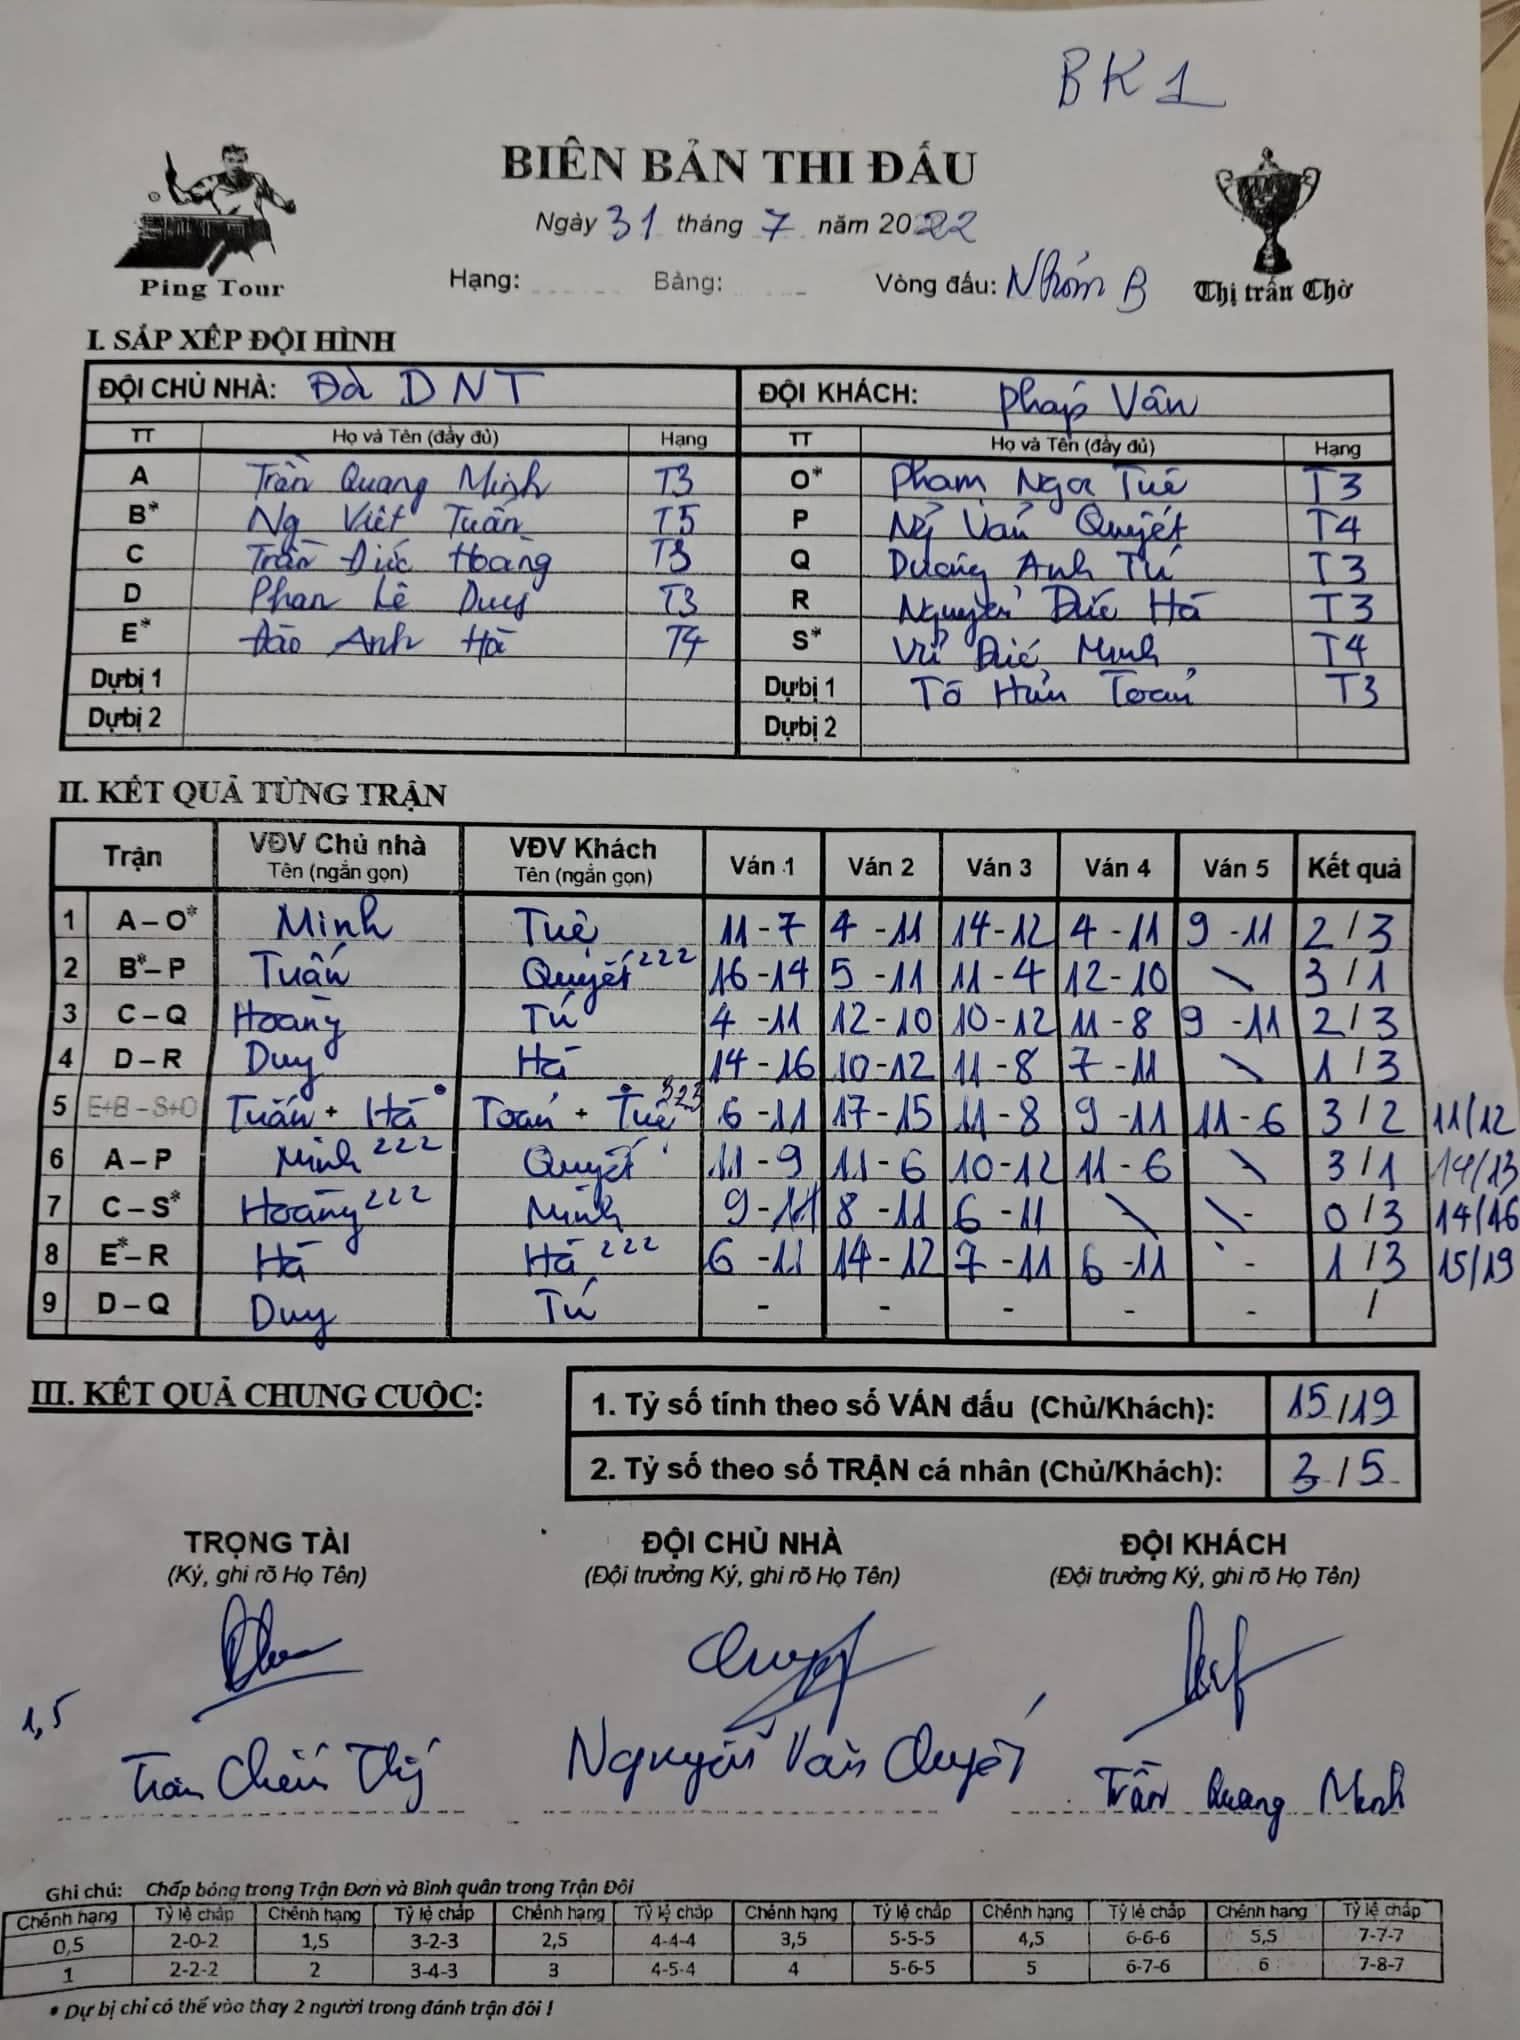 BK1
BIÊN BẢN THI ĐẤU
Ngày 31 tháng 7 năm 2022
Ping Tour
Hạng: Bảng: Vòng đấu: Nhóm B
Thị trấn Chờ
I. SẮP XẾP ĐỘI HÌNH
ĐỘI CHỦ NHÀ: Đà DNT ĐỘI KHÁCH: Pháp Vân
TT Họ và Tên (đầy đủ) Hạng TT Họ và Tên (đầy đủ) Hạng
A Trần Quang Minh T3 O* Phạm Nga Tuê T3
B* Ng Viết Tuấn T5 P Ng Văn Quyết T4
C Trần Đức Hoàng T3 Q Dương Anh Tú T3
D Phan Lê Duy T3 R Nguyễn Đức Hà T3
E* Đào Anh Hà T4 S* Vũ Đức Minh T4
Dự bị 1 Dự bị 1 Tô Toán T3
Dự bị 2 Dự bị 2
II. KẾT QUẢ TỪNG TRẬN
Trận VĐV Chủ nhà Tên (ngắn gọn) VĐV Khách Tên (ngắn gọn) Ván 1 Ván 2 Ván 3 Ván 4 Ván 5 Kết quả
1 A – O* Minh Tuê 11 - 7 4 - 11 14 - 12 4 - 11 9 - 11 2 / 3
2 B* – P Tuấn Quyết 222 16 - 14 5 - 11 11 - 4 12 - 10 \ 3 / 1
3 C – Q Hoàng Tú 4 - 11 12 - 10 10 - 12 11 - 8 9 - 11 2 / 3
4 D – R Duy Hà 14 - 16 10 - 12 11 - 8 7 - 11 \ 1 / 3
5 E+B – S+O Tuấn + Hà Toán + Tuê 323 6 - 11 17 - 15 11 - 8 9 - 11 11 - 6 3 / 2 11/12
6 A – P Minh 222 Quyết 11 - 9 11 - 6 10 - 12 11 - 6 \ 3 / 1 14/13
7 C – S* Hoàng 222 Minh 9 - 11 8 - 11 6 - 11 \ \ - 0 / 3 14/16
8 E* – R Hà Hà 222 6 - 11 14 - 12 7 - 11 6 - 11 - 1 / 3 15/19
9 D – Q Duy Tú - - - - - /
III. KẾT QUẢ CHUNG CUỘC:
1. Tỷ số tính theo số VÁN đấu (Chủ/Khách): 15/19
2. Tỷ số theo số TRẬN cá nhân (Chủ/Khách): 3/5
TRỌNG TÀI ĐỘI CHỦ NHÀ ĐỘI KHÁCH
(Ký, ghi rõ Họ Tên) (Đội trưởng Ký, ghi rõ Họ Tên) (Đội trưởng Ký, ghi rõ Họ Tên)
1,5
Trần Chiến Nguyễn Văn Quyết Trần Quang Minh
Ghi chú: Chấp bóng trong Trận Đơn và Bình quân trong Trận Đôi
Chênh hạng Tỷ lệ chấp Chênh hạng Tỷ lệ chấp Chênh hạng Tỷ lệ chấp Chênh hạng Tỷ lệ chấp Chênh hạng Tỷ lệ chấp Chênh hạng Tỷ lệ chấp
0,5 2-0-2 1,5 3-2-3 2,5 4-4-4 3,5 5-5-5 4,5 6-6-6 5,5 7-7-7
1 2-2-2 2 3-4-3 3 4-5-4 4 5-6-5 5 6-7-6 6 7-8-7
* Dự bị chỉ có thể vào thay 2 người trong đánh trận đôi !